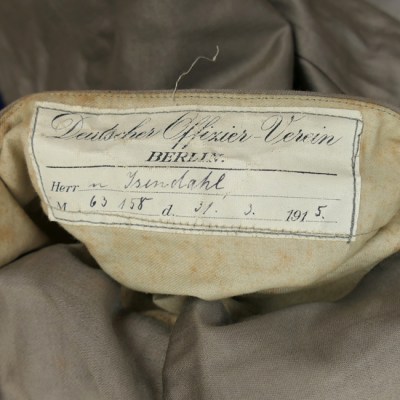 Deutscher Offizier-Verein
BERLIN.
Herr v Isendahl
M 63 158 d. 31. 3. 1915.